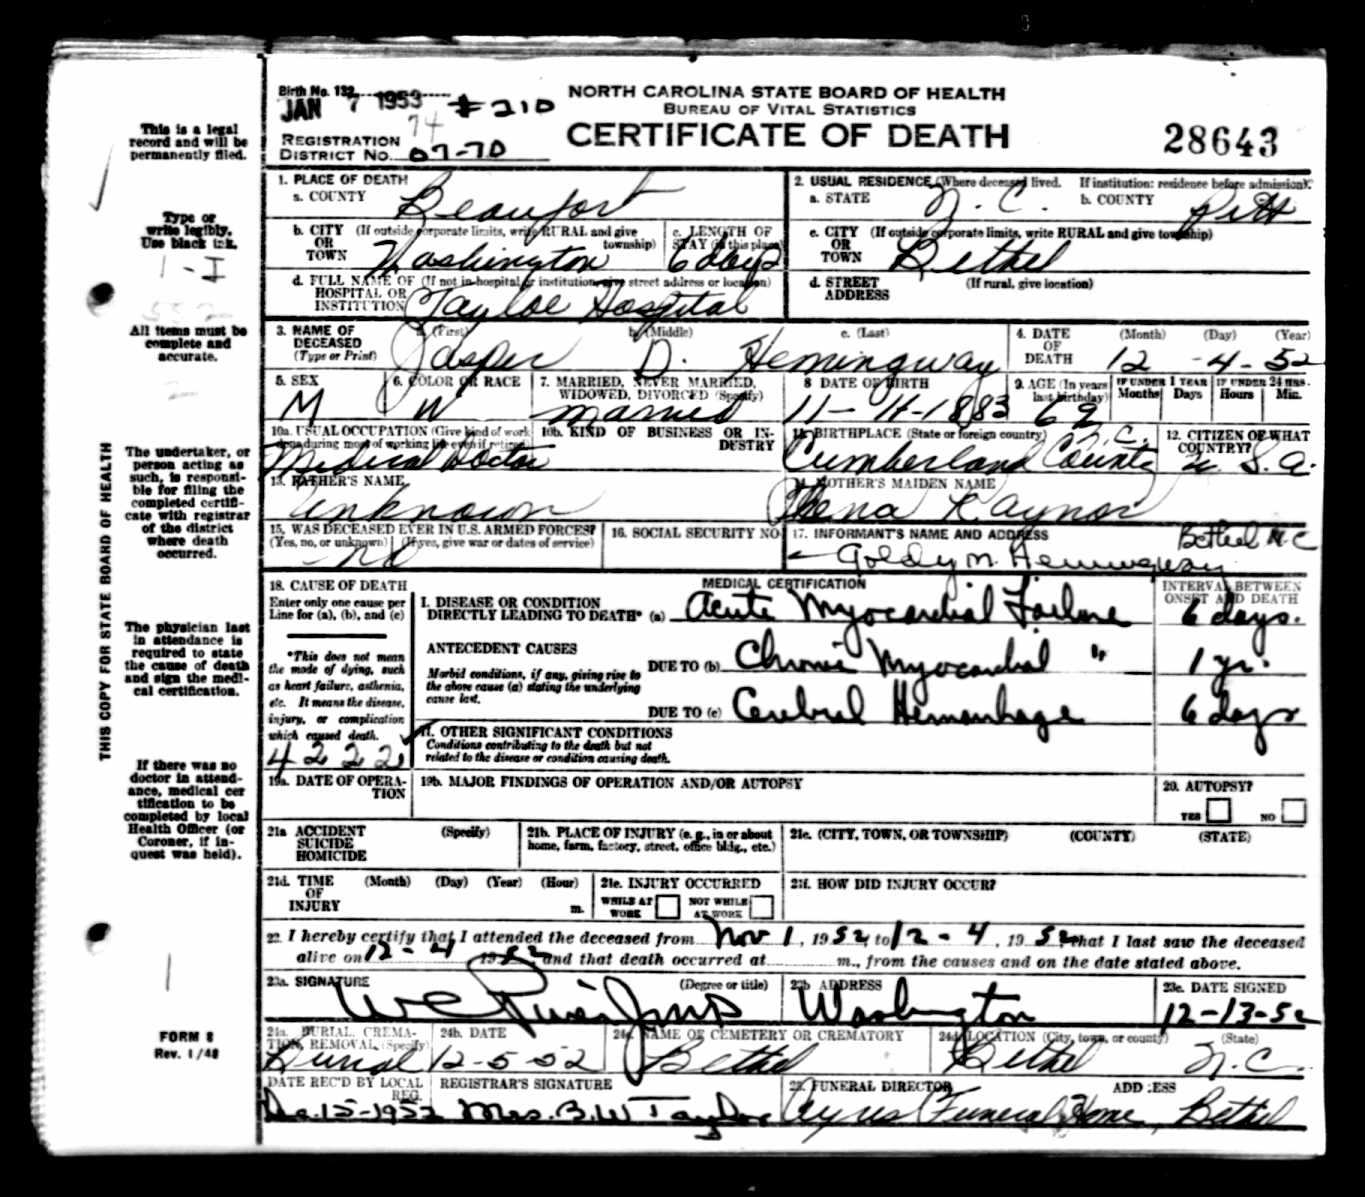 Birth No. 132
JAN 7 1953 #210
NORTH CAROLINA STATE BOARD OF HEALTH
BUREAU OF VITAL STATISTICS
CERTIFICATE OF DEATH
28643
74
REGISTRATION
DISTRICT No. 07-70
This is a legal
record and will be
permanently filed.
Type or
write legibly.
Use black ink.
1-I
All items must be
complete and
accurate.
The undertaker, or
person acting as
such, is responsi-
ble for filing the
completed certifi-
cate with registrar
of the district
where death
occurred.
The physician last
in attendance is
required to state
the cause of death
and sign the medi-
cal certification.
If there was no
doctor in attend-
ance, medical cer
tification to be
completed by local
Health Officer (or
Coroner, if in-
quest was held).
FORM 8
Rev. 1/48
THIS COPY FOR STATE BOARD OF HEALTH
1. PLACE OF DEATH
a. COUNTY Beaufort
2. USUAL RESIDENCE (Where deceased lived. If institution: residence before admission).
a. STATE N.C. b. COUNTY Pitt
b. CITY (If outside corporate limits, write RURAL and give township)
OR
TOWN Washington
c. LENGTH OF
STAY (in this place)
6 days
c. CITY (If outside corporate limits, write RURAL and give township)
OR
TOWN Bethel
d. FULL NAME OF (If not in hospital or institution, give street address or location)
HOSPITAL OR
INSTITUTION Tayloe Hospital
d. STREET (If rural, give location)
ADDRESS
3. NAME OF
DECEASED
(Type or Print)
a. (First) b. (Middle) c. (Last)
Jasper D. Hemingway
4. DATE (Month) (Day) (Year)
OF
DEATH 12-4-52
5. SEX
M
6. COLOR OR RACE
W
7. MARRIED, NEVER MARRIED,
WIDOWED, DIVORCED (Specify)
Married
8 DATE OF BIRTH
11-11-1883
9. AGE (In years
last birthday)
69
IF UNDER 1 YEAR
Months Days
IF UNDER 24 HRS.
Hours Min.
10a. USUAL OCCUPATION (Give kind of work
done during most of working life even if retired)
Medical Doctor
10b. KIND OF BUSINESS OR IN-
DUSTRY
11. BIRTHPLACE (State or foreign country) N.C.
Cumberland County
12. CITIZEN OF WHAT
COUNTRY?
U.S.A.
13. FATHER'S NAME
Unknown
14. MOTHER'S MAIDEN NAME
Raynor
15. WAS DECEASED EVER IN U.S. ARMED FORCES?
(Yes, no, or unknown) (If yes, give war or dates of service)
no
16. SOCIAL SECURITY NO
17. INFORMANT'S NAME AND ADDRESS Bethel N C
Goldy M. Hemingway
18. CAUSE OF DEATH
Enter only one cause per
Line for (a), (b), and (c)
*This does not mean
the mode of dying, such
as heart failure, asthenia,
etc. It means the disease,
injury, or complication
which caused death.
4222
MEDICAL CERTIFICATION
INTERVAL BETWEEN
ONSET AND DEATH
I. DISEASE OR CONDITION
DIRECTLY LEADING TO DEATH* (a) Acute Myocardial Failure 6 days.
ANTECEDENT CAUSES
Morbid conditions, if any, giving rise to
the above cause (a) stating the underlying
cause last.
DUE TO (b) Chronic Myocardial " 1 yr.
DUE TO (c) Cerebral Hemorrhage 6 days
II. OTHER SIGNIFICANT CONDITIONS
Conditions contributing to the death but not
related to the disease or condition causing death.
19a. DATE OF OPERA-
TION
19b. MAJOR FINDINGS OF OPERATION AND/OR AUTOPSY
20. AUTOPSY?
YES NO
21a ACCIDENT (Specify)
SUICIDE
HOMICIDE
21b. PLACE OF INJURY (e. g., in or about
home, farm, factory, street, office bldg., etc.)
21c. (CITY, TOWN, OR TOWNSHIP) (COUNTY) (STATE)
21d. TIME (Month) (Day) (Year) (Hour)
OF
INJURY m.
21e. INJURY OCCURRED
WHILE AT WORK NOT WHILE AT WORK
21f. HOW DID INJURY OCCUR?
22. I hereby certify that I attended the deceased from Nov 1, 1952, to 12-4, 1952 that I last saw the deceased
alive on 12-4 1952 and that death occurred at m., from the causes and on the date stated above.
23a. SIGNATURE (Degree or title)
23b ADDRESS
Washington
23c. DATE SIGNED
12-13-52
24a. BURIAL, CREMA-
TION, REMOVAL (Specify)
Burial
24b. DATE
12-5-52
24c. NAME OF CEMETERY OR CREMATORY
Bethel
24d LOCATION (City, town, or county) (State)
Bethel N.C.
DATE REC'D BY LOCAL
REG.
Dec. 15-1952
REGISTRAR'S SIGNATURE
Mrs. B.W Tayloe
25. FUNERAL DIRECTOR ADDRESS
Ayres Funeral Home, Bethel